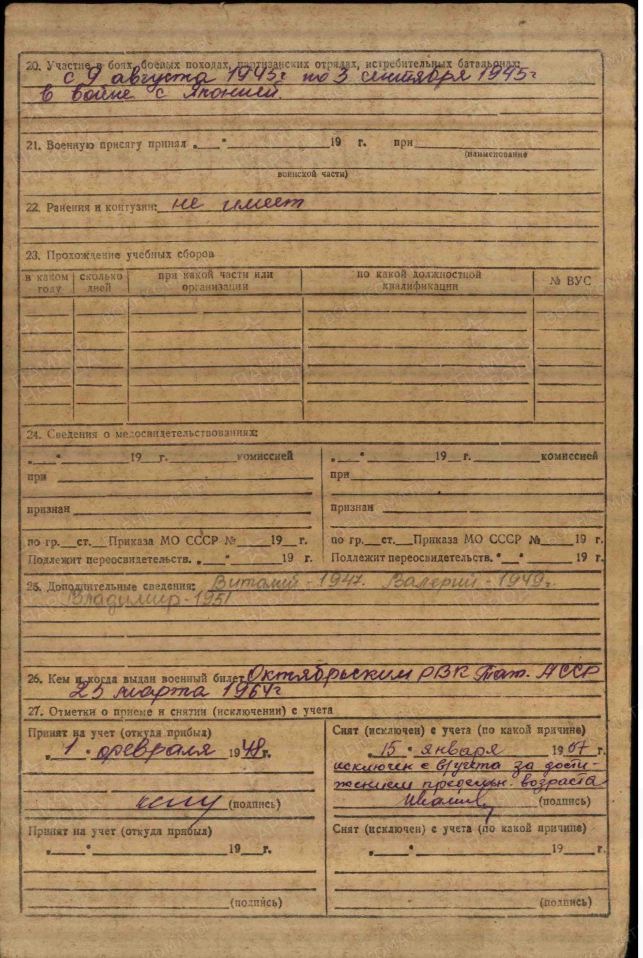 20. Участие в боях, боевых походах, партизанских отрядах, истребительных батальонах:
с 9 августа 1945г по 3 сентября 1945г
в войне с Японией.
21. Военную присягу принял „ “ 19 г. при
(наименование
воинской части)
22. Ранения и контузии: не имеет
23. Прохождение учебных сборов
в каком году | сколько дней | при какой части или организации | по какой должностной квалификации | № ВУС
24. Сведения о медосвидетельствованиях:
„ “ 19 г. комиссией „ “ 19 г. комиссией
при при
признан признан
по гр. ст. Приказа МО СССР № 19 г. по гр. ст. Приказа МО СССР № 19 г.
Подлежит переосвидетельств. „ “ 19 г. Подлежит переосвидетельств. „ “ 19 г.
25. Дополнительные сведения: Виталий - 1947. Валерий - 1949г.
Владимир - 1951
26. Кем и когда выдан военный билет Октябрьским РВК Тат. АССР
25 марта 1964г
27. Отметки о приеме и снятии (исключении) с учета
Принят на учет (откуда прибыл) Снят (исключен) с учета (по какой причине)
„ 1 “ февраля 1948г. „ 15 “ января 1967 г.
исключен с в/учета за дости-
жением предельн. возраста
(подпись) (подпись)
Принят на учет (откуда прибыл) Снят (исключен) с учета (по какой причине)
„ “ 19 г. „ “ 19 г.
(подпись) (подпись)